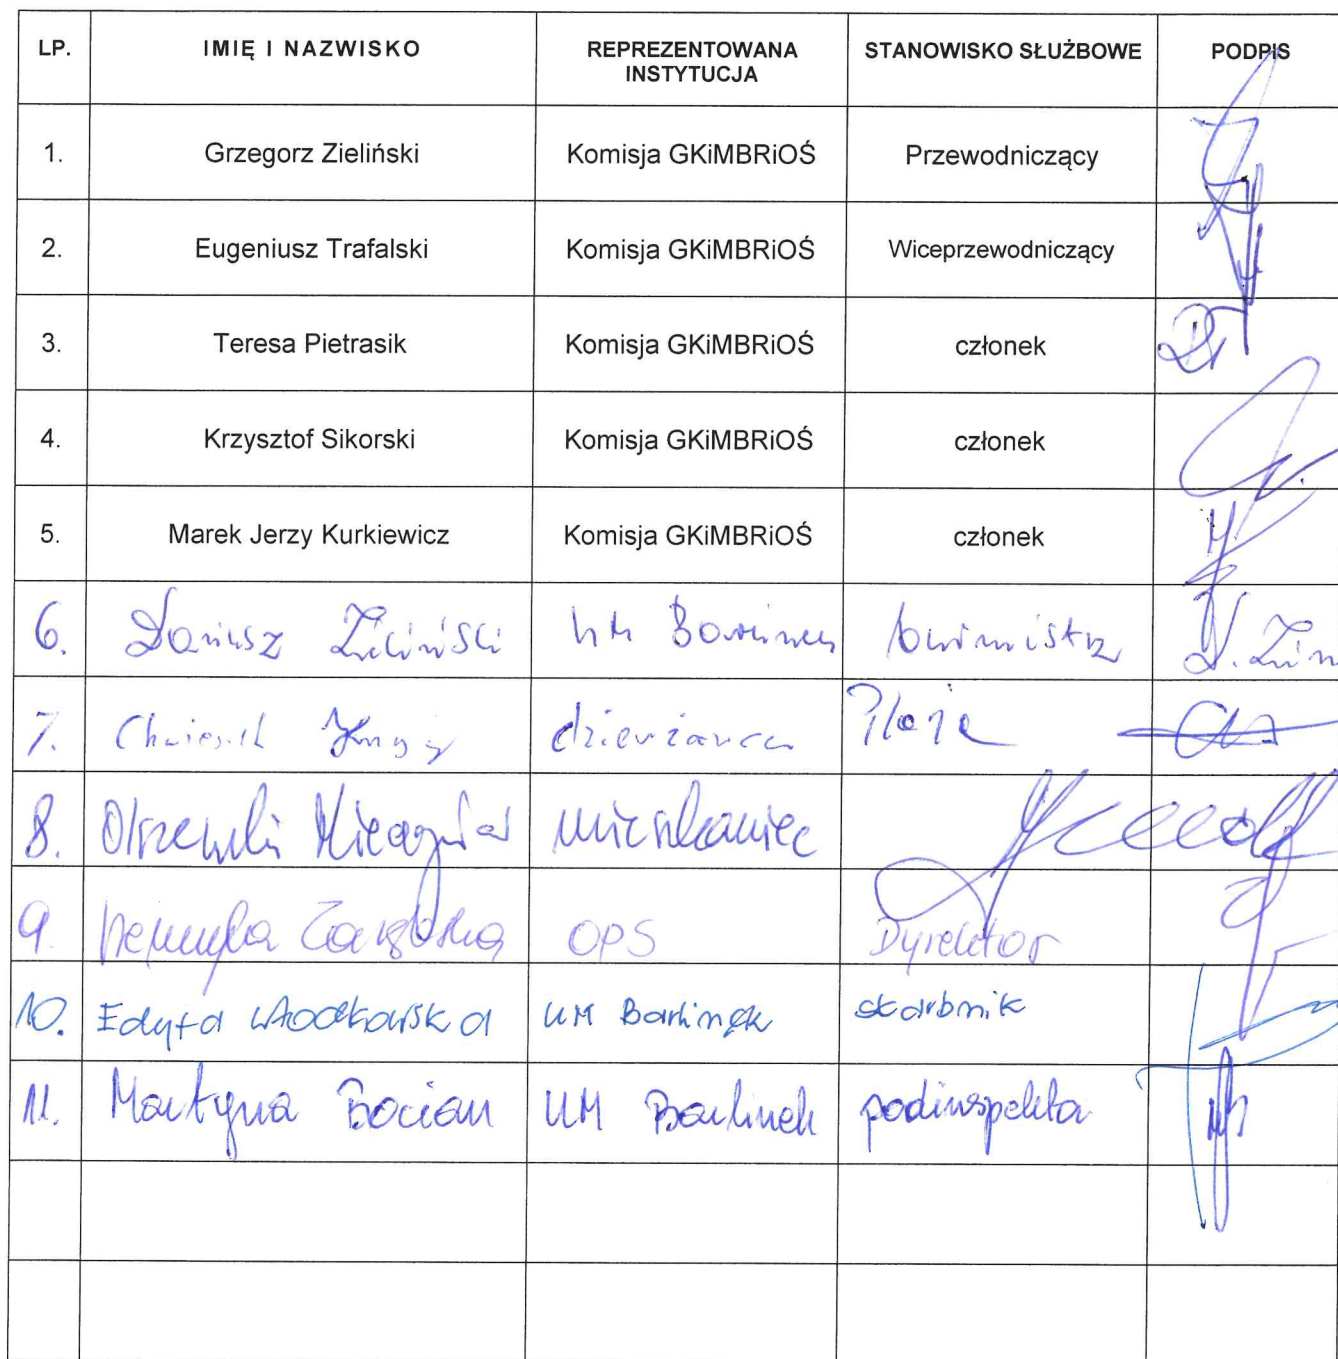 LP. IMIĘ I NAZWISKO REPREZENTOWANA INSTYTUCJA STANOWISKO SŁUŻBOWE PODPIS
1. Grzegorz Zieliński Komisja GKiMBRiOŚ Przewodniczący
2. Eugeniusz Trafalski Komisja GKiMBRiOŚ Wiceprzewodniczący
3. Teresa Pietrasik Komisja GKiMBRiOŚ członek
4. Krzysztof Sikorski Komisja GKiMBRiOŚ członek
5. Marek Jerzy Kurkiewicz Komisja GKiMBRiOŚ członek
6. Dariusz Zieliński UM Barlinek burmistrz D. Zieliń
7. dzierżawca Plaża
8. Olszewski mieszkaniec
9. OPS Dyrektor
10. Edyta Włodkowska UM Barlinek skarbnik
11. Martyna Bocian UM Barlinek podinspektor